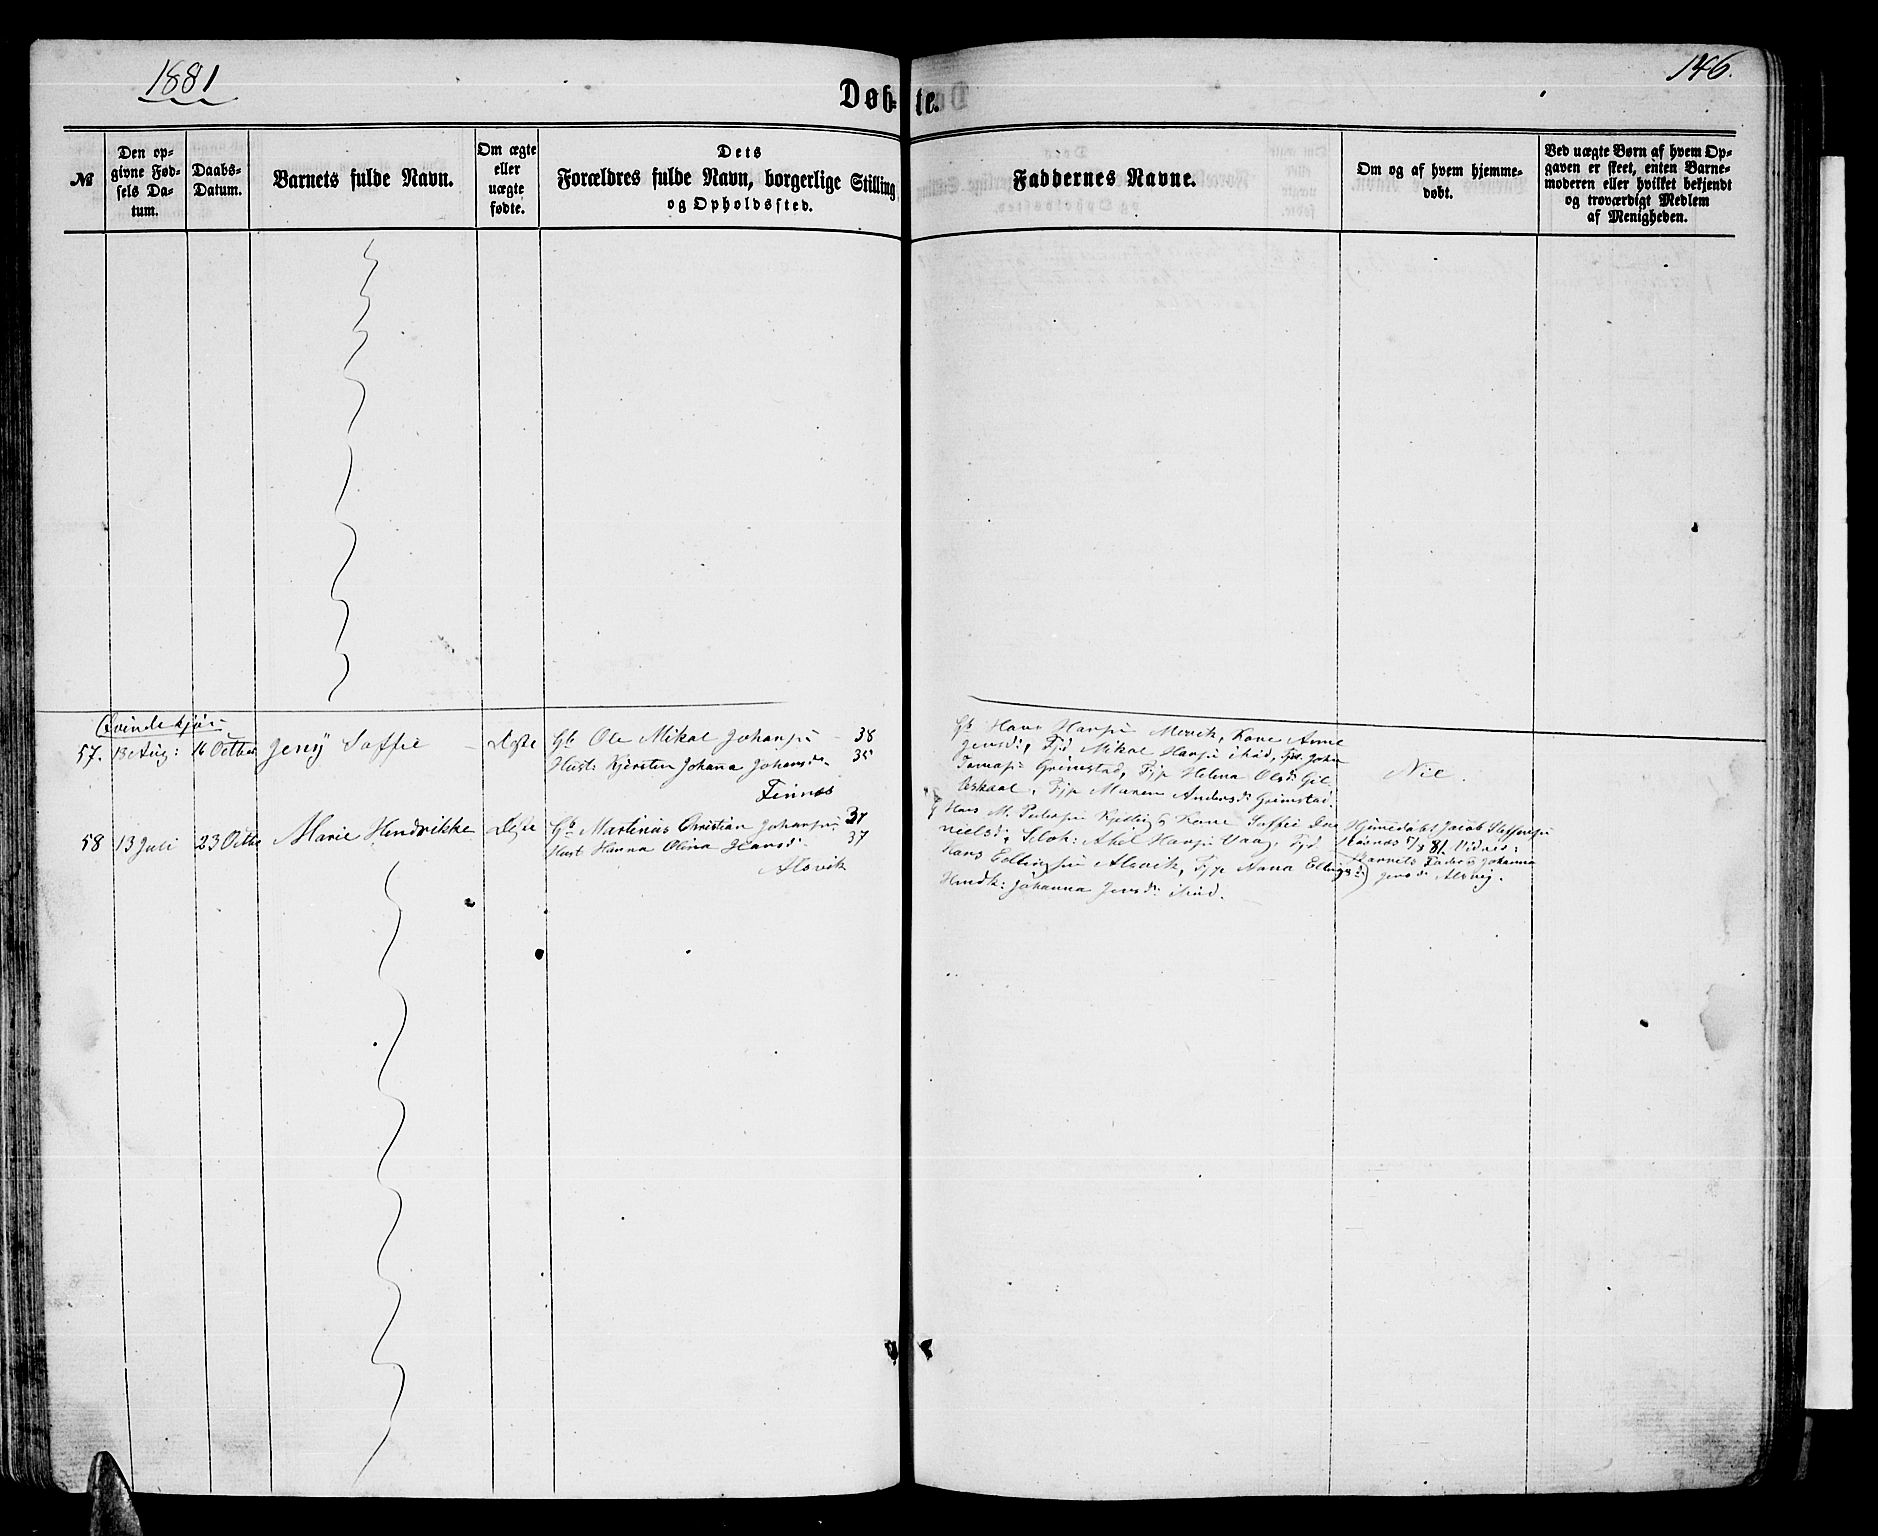 1881
146.
Døb-te.
№
Den op-
givne Fød-
sels Da-
tum.
Daabs-
Datum.
Barnets fulde Navn.
Om ægte
eller
uægte
fødte.
Dets
Forældres fulde Navn, borgerlige Stilling
og Opholdssted.
Faddernes Navne.
Om og af hvem hjemme-
døbt.
Ved uægte Børn af hvem Op-
gaven er skeet, enten Barne-
moderen eller hvilket bekjendt
og troværdigt Medlem
af Menigheden.
Qvindekjøn
57. 13 Aug: 16 Octbr Jeny Soffie Ægte Gb Ole Mikal Johansn 38
Hust: Kjersten Johanna Johansdr 35
Finnes
Gb Hans Hansn Mevik, Kone Anne
Jensdr, Fjd Mikal Hansn ibid, Fjd. Johan
Grimstad, Fjp Helena Olsdr Gil
Fjp Maren Andersdr Grimstad.
Nil.
58 13 Juli 23 Octbr Marie Hendrikke Ægte Gb Martinus Christian Johansn 37
Hust Hanna Olina Hansdr 37
Alsvik
Hans M. Pedersn Kone Soffie Da
nielsdr Axel Hansn Vaag, Fjd.
Hans Alsvik, Fjp Anna
Johanna Jensdr ibid.
Hjemedøbt Jacob Steffensn
81. Vidner:
Barnets Fader & Johanna
Jensdr Alsvig.